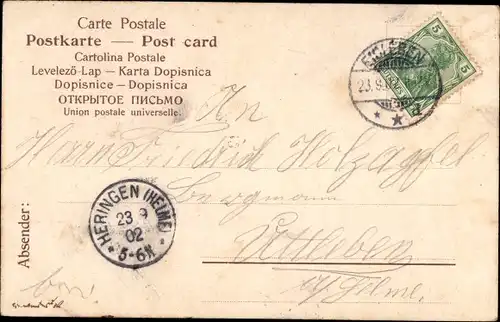 Carte Postale
Postkarte — Post card
Cartolina Postale
Levelező-Lap — Karta Dopisnica
Dopisnice — Dopisnica
ОТКРЫТОЕ ПИСЬМО
Union postale universelle.
5 5
EISLEBEN
23.9.
An
Herrn Friedrich Holzapfel
Bergmann
Uttleben
a/Helme.
HERINGEN (HELME)
23 9
02
5-6N
Absender: